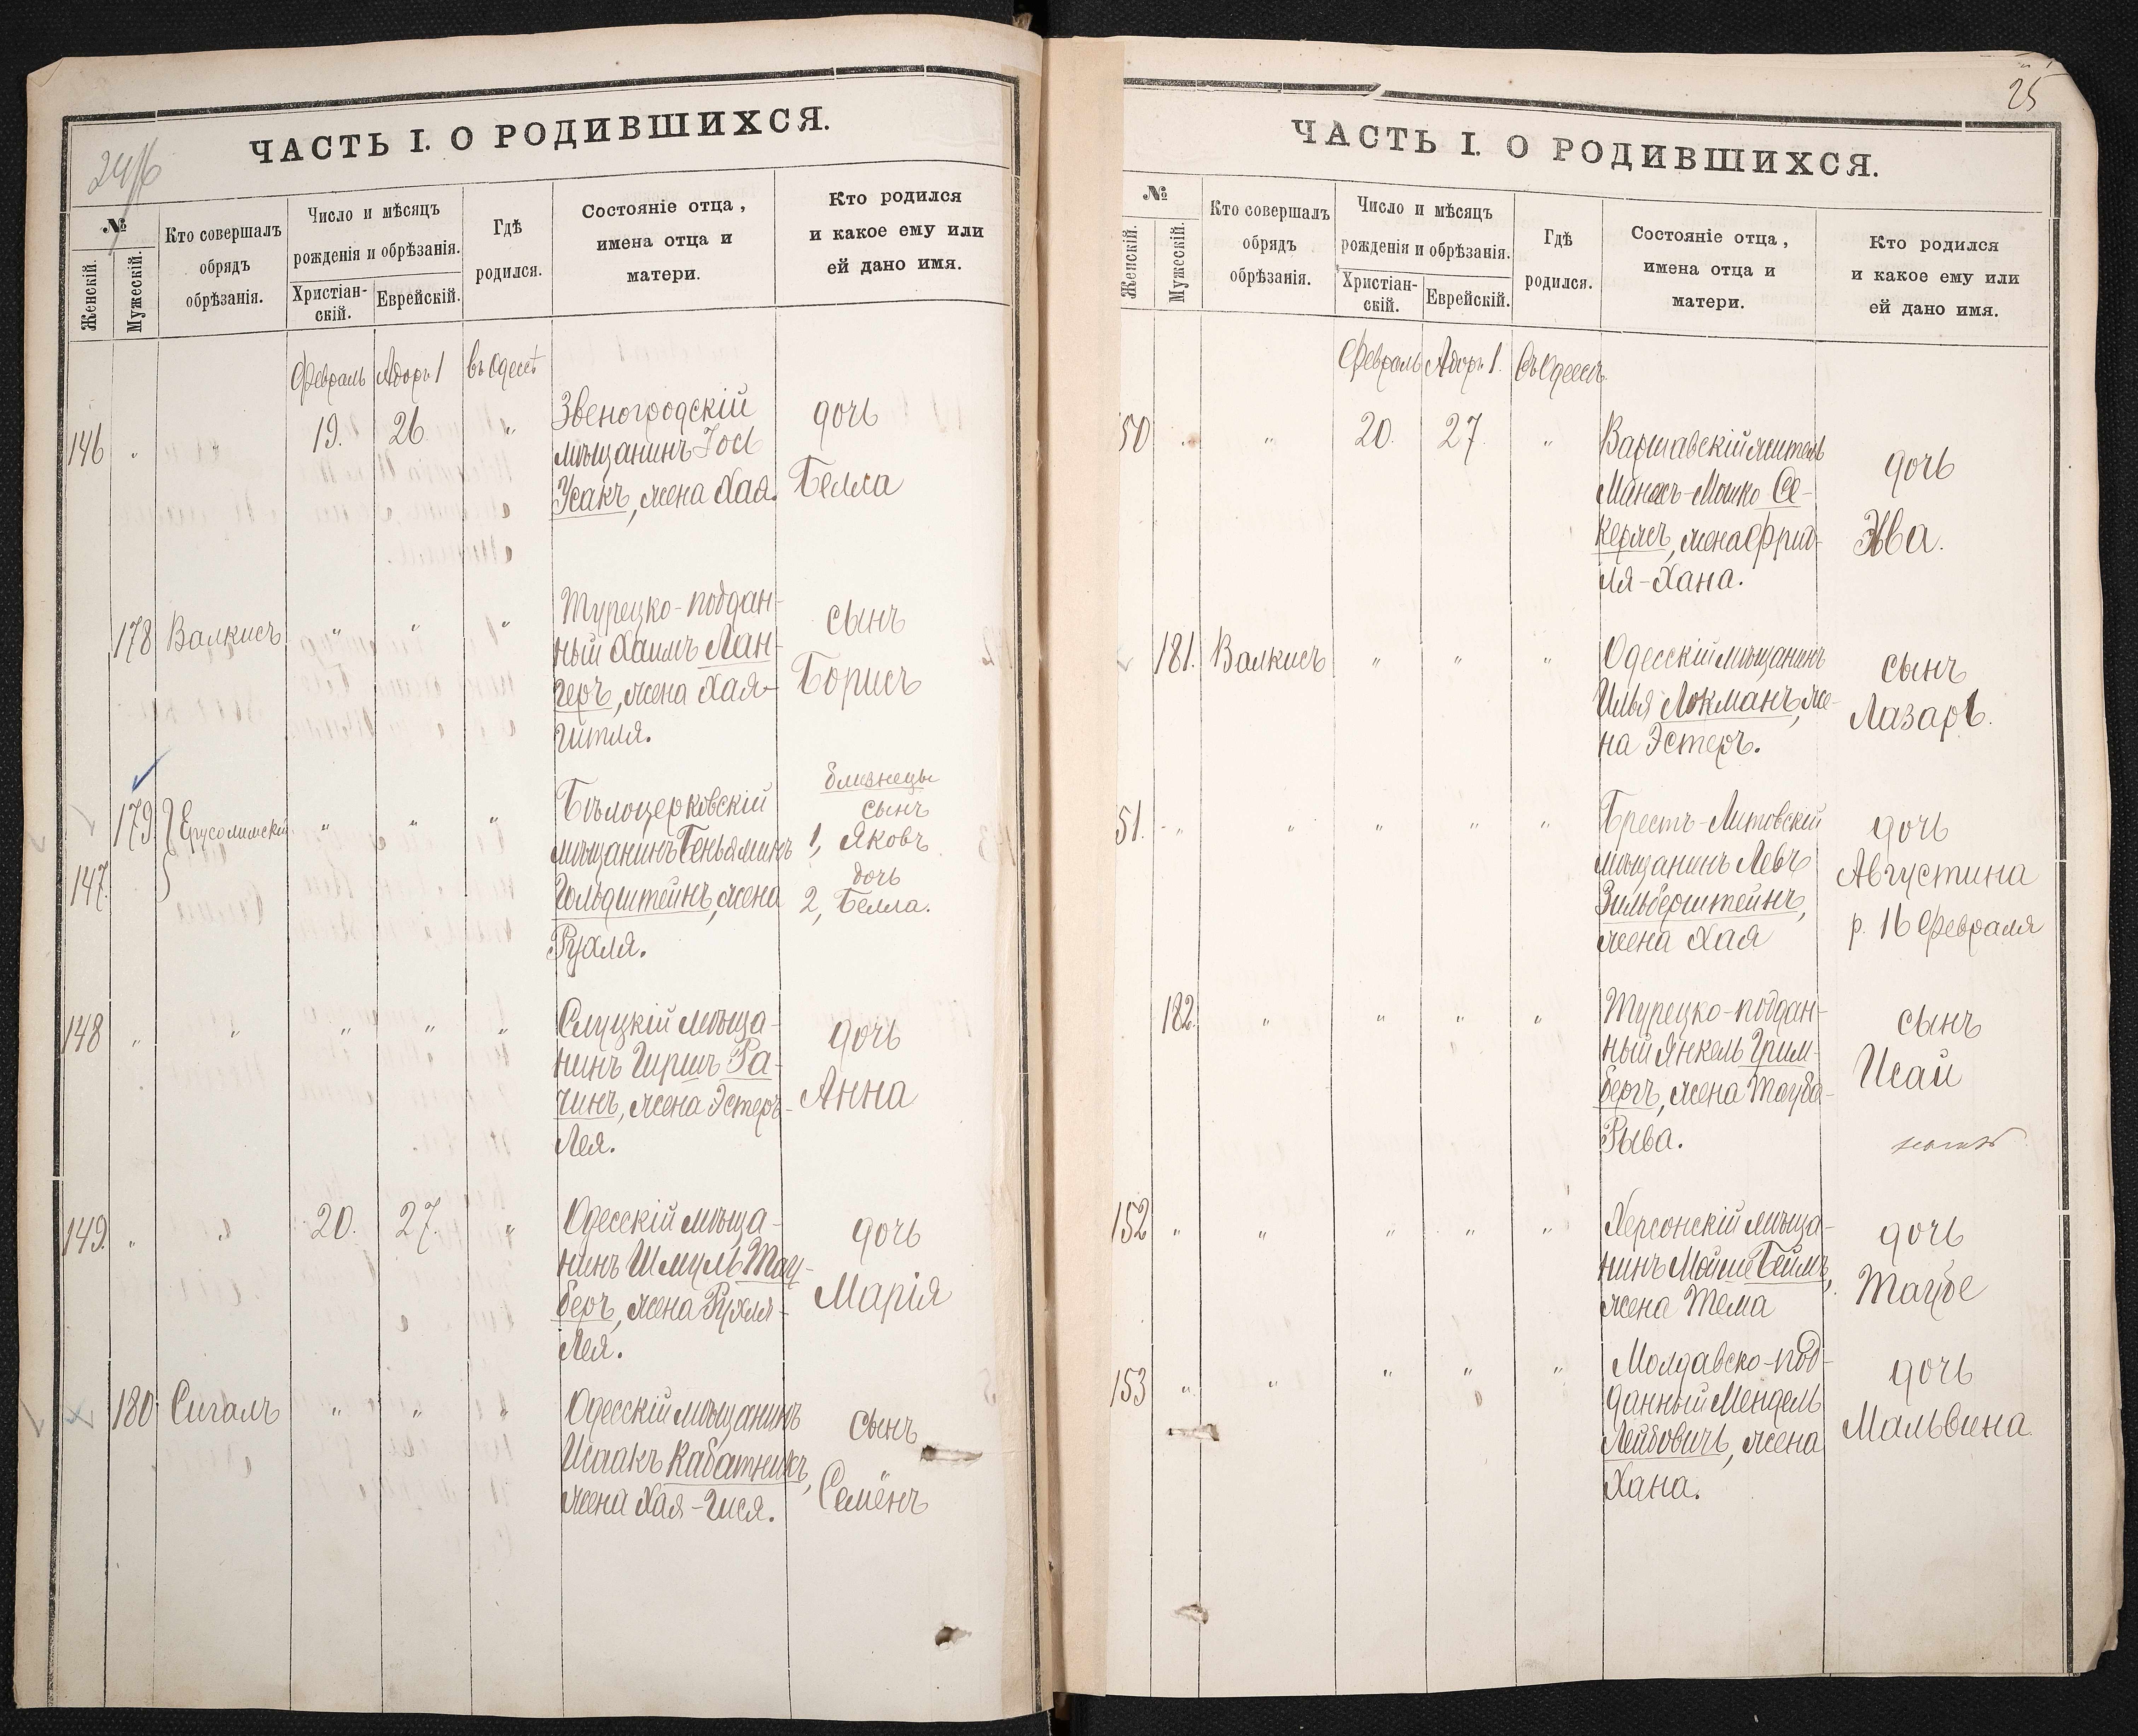 ЧАСТЬ I. О РОДИВШИХСЯ.
№
Женскій.
Мужескій.
Кто совершалъ
обрядъ
обрѣзанія.
Число и мѣсяцъ
рожденія и обрѣзанія.
Христіан-
скій.
Еврейскій.
Гдѣ
родился.
Состояніе отца,
имена отца и
матери.
Кто родился
и какое ему или
ей дано имя.
Февраль Адоръ 1 въ Одессѣ
146 " 19. 26 "
Звеногродскій
мѣщанинъ Іось
Усакъ, жена Хая.
дочь
Белла
178 Валкисъ " " "
Турецко-поддан-
ный Хаимъ Лан-
геръ, жена Хая-
Гитля.
сынъ
Борисъ
179 Ерусолимскій " " "
147.
Бѣлоцерковскій
мѣщанинъ Беньяминъ
Гольдштейнъ, жена
Рухля.
близнецы
сынъ
1, Яковъ
дочь
2, Белла.
148 " " " " "
Слуцкій мѣща-
нинъ Гиршъ Ра-
чинъ, жена Эстеръ-
Лея.
дочь
Анна
149. " " 20. 27. "
Одесскій мѣща-
нинъ Шмуль Тау-
беръ, жена Рухля-
Лея.
дочь
Марія
180 Сигалъ " " "
Одесскій мѣщанинъ
Исаакъ Кабатникъ,
жена Хая-Гися.
сынъ
Семёнъ
25
ЧАСТЬ I. О РОДИВШИХСЯ.
№
Женскій.
Мужескій.
Кто совершалъ
обрядъ
обрѣзанія.
Число и мѣсяцъ
рожденія и обрѣзанія.
Христіан-
скій.
Еврейскій.
Гдѣ
родился.
Состояніе отца,
имена отца и
матери.
Кто родился
и какое ему или
ей дано имя.
Февраль Адоръ 1. въ Одессѣ
50 " " 20. 27. "
Варшавскій житель
Манасъ-Мошко Се-
кержъ, жена Фрид-
ля-Хана.
дочь
Эва.
181. Валкисъ " " "
Одесскій мѣщанинъ
Илья Локманъ, же-
на Эстеръ.
сынъ
Лазарь.
51. " " " " "
Брестъ-Литовскій
мѣщанинъ Левъ
Зильберштейнъ,
жена Хая
дочь
Августина
р. 16 Февраля
182. " " " "
Турецко-поддан-
ный Янкель Грим-
бергъ, жена Тауба-
Рыва.
сынъ
Исай
152 " " " " "
Херсонскій мѣща-
нинъ Мойше Беймъ,
жена Тема
дочь
Таубе
153 " " " " "
Молдавско-под-
данный Мендель
Лейбовичъ, жена
Хана.
дочь
Мальвина.